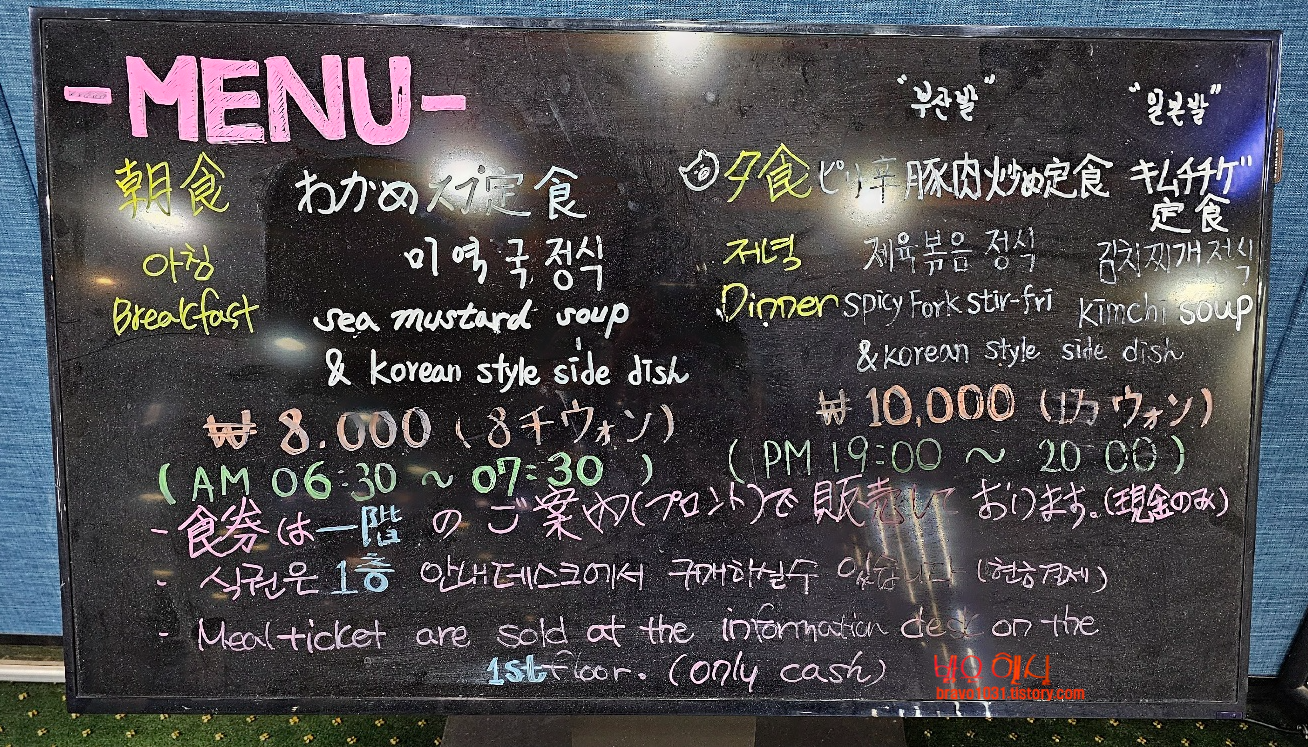 -MENU-
"부산발" "일본발"
朝食 わかめスープ定食
아침 미역국 정식
Breakfast sea mustard soup
& korean style side dish
₩ 8.000 (8千ウォン)
(AM 06:30 ~ 07:30)
夕食 ピリ辛 豚肉炒め定食 キムチチゲ
定食
저녁 제육볶음 정식 김치찌개 정식
Dinner spicy Fork stir-fri kimchi soup
& korean style side dish
₩ 10,000 (1万ウォン)
(PM 19:00 ~ 20:00)
- 食券は一階 の ご案内(プロント)で 販売して おります。(現金のみ)
- 식권은 1층 안내데스크에서 구매하실수 있습니다 (현금결제)
- Meal ticket are sold at the information desk on the
1st floor. (only cash)
bravo1031.tistory.com